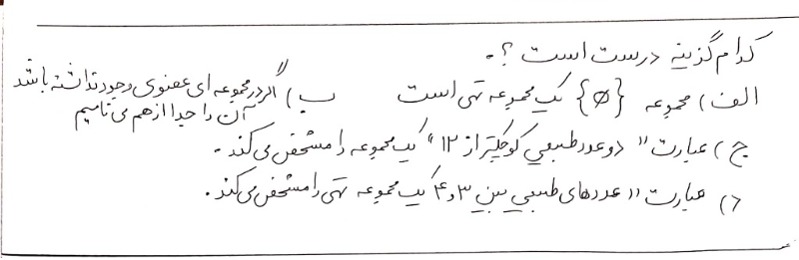 کدام گزینه درست است ؟.
الف) مجموعه {∅} یک مجموعه تهی است
ب) اگر در مجموعه ای عضوی وجود نداشته باشد
آن را جدا از هم می نامیم
ج) عبارت " دو عدد طبیعی کوچکتر از ۱۲" یک مجموعه را مشخص می کند .
د) عبارت " عددهای طبیعی بین ۳ و ۴ یک مجموعه تهی را مشخص می کند .